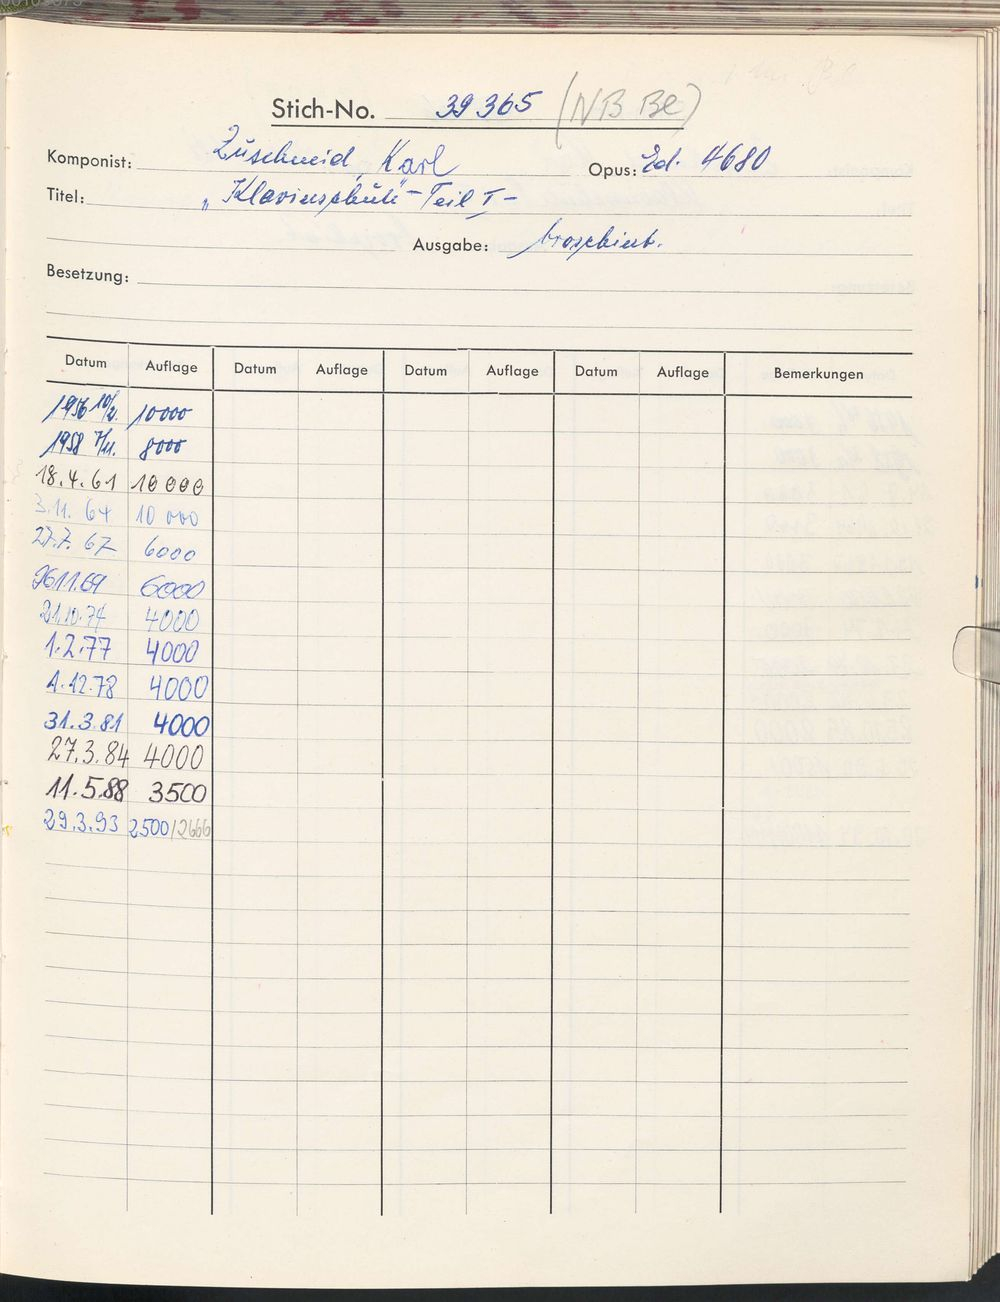 Stich-No. 39365 (NB Be)
Komponist: Zuschneid, Karl Opus: Ed. 4680
Titel: „Klavierschule" - Teil I -
Ausgabe: broschiert.
Besetzung:
Datum Auflage Datum Auflage Datum Auflage Datum Auflage Bemerkungen
1956 10/2. 10000
1958 7/11. 8000
18.4.61 10 000
3.11.64 10 000
27.7.67 6000
26.11.69 6000
21.10.74 4000
1.2.77 4000
1.12.78 4000
31.3.81 4000
27.3.84 4000
11.5.88 3500
29.3.93 2500/2666